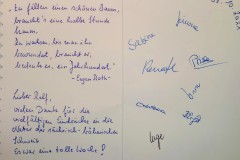 "Zu fällen einen schönen Baum,
braucht's eine halbe Stunde
kaum.
Zu wachsen, bis man ihn
bewundert, braucht er,
bedenk es, ein Jahrhundert."
- Eugen Roth -
Lieber Ralf,
vielen Dank für die
vielfältigen Eindrücke in die
der sächsisch-böhmischen
Schweiz
Es war eine tolle Woche!
Sabine
Renate
Inge